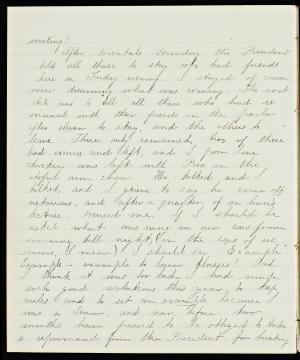 writing!
After Mental Monday, the President
told all those to stay who had friends
here on Friday evening. I stayed of course
never dreaming what was coming. The next
step was to tell all those who had re-
mained with their friends in the parlor
after eleven to stay, and the others to
leave. Three only remained, two of these
had excuses and left, and I poor lone
chicken was left with Prex in the
awful arm chair. He talked and I
talked, and I grieve to say he came off
victorious, and after a quarter of an hour's
lecture, excused me. If I should be
asked what was rung in our ears from
morning till night, (in the ears of us
Seniors, I mean) I should say "Example
Example - example to lower classes" and
I think it was too bad. I had made
such good resolutions this year, to keep
rules and to set an example because I
was a Senior, and now, before two
months have passed to be obliged to take
a reprimand from the President, for breaking